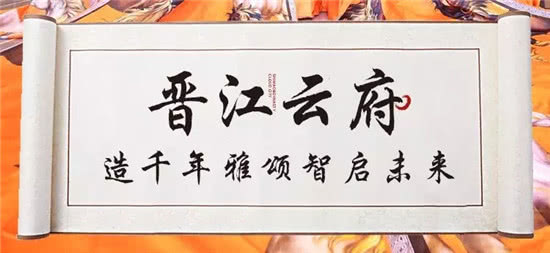 晋江云府
造千年雅颂智启未来